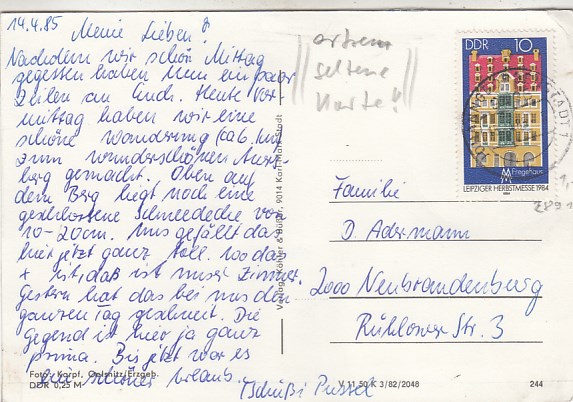 14.4.85 Meine Lieben!
Nachdem wir schön Mittag
gegessen haben nun ein paar
Zeilen an Euch. Heute Vor-
mittag haben wir eine
schöne Wanderung (ca 6 km)
zum wunderschönen Auers-
berg gemacht. Oben auf
dem Berg liegt noch eine
geschlossene Schneedecke von
10-20cm. Uns gefällt das
hier jetzt ganz toll.
ist, daß ist unser Zimmer.
Gestern hat das bei uns den
ganzen Tag geschneit. Die
Gegend ist hier ja ganz
prima. Bis jetzt war es
ein schöner Urlaub.
Tschüßi Pussel
extrem
seltene
Karte!!
DDR 10
Fregehaus
LEIPZIGER HERBSTMESSE 1984
Familie
D. Adermann
2000 Neubrandenburg
Rühlower Str. 3
Verlag Köhler & Büttner, 9014 Karl-Marx-Stadt
Foto: Karpf, Oelsnitz/Erzgeb.
DDR 0,25 M
V 11 50 K 3/82/2046
244